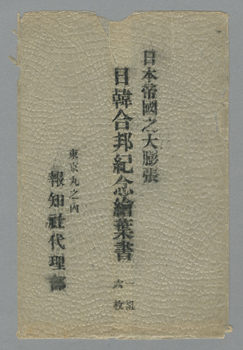 日本帝國之大膨張
日韓合邦紀念繪葉書
一組
六枚
東京丸之内
報知社代理部